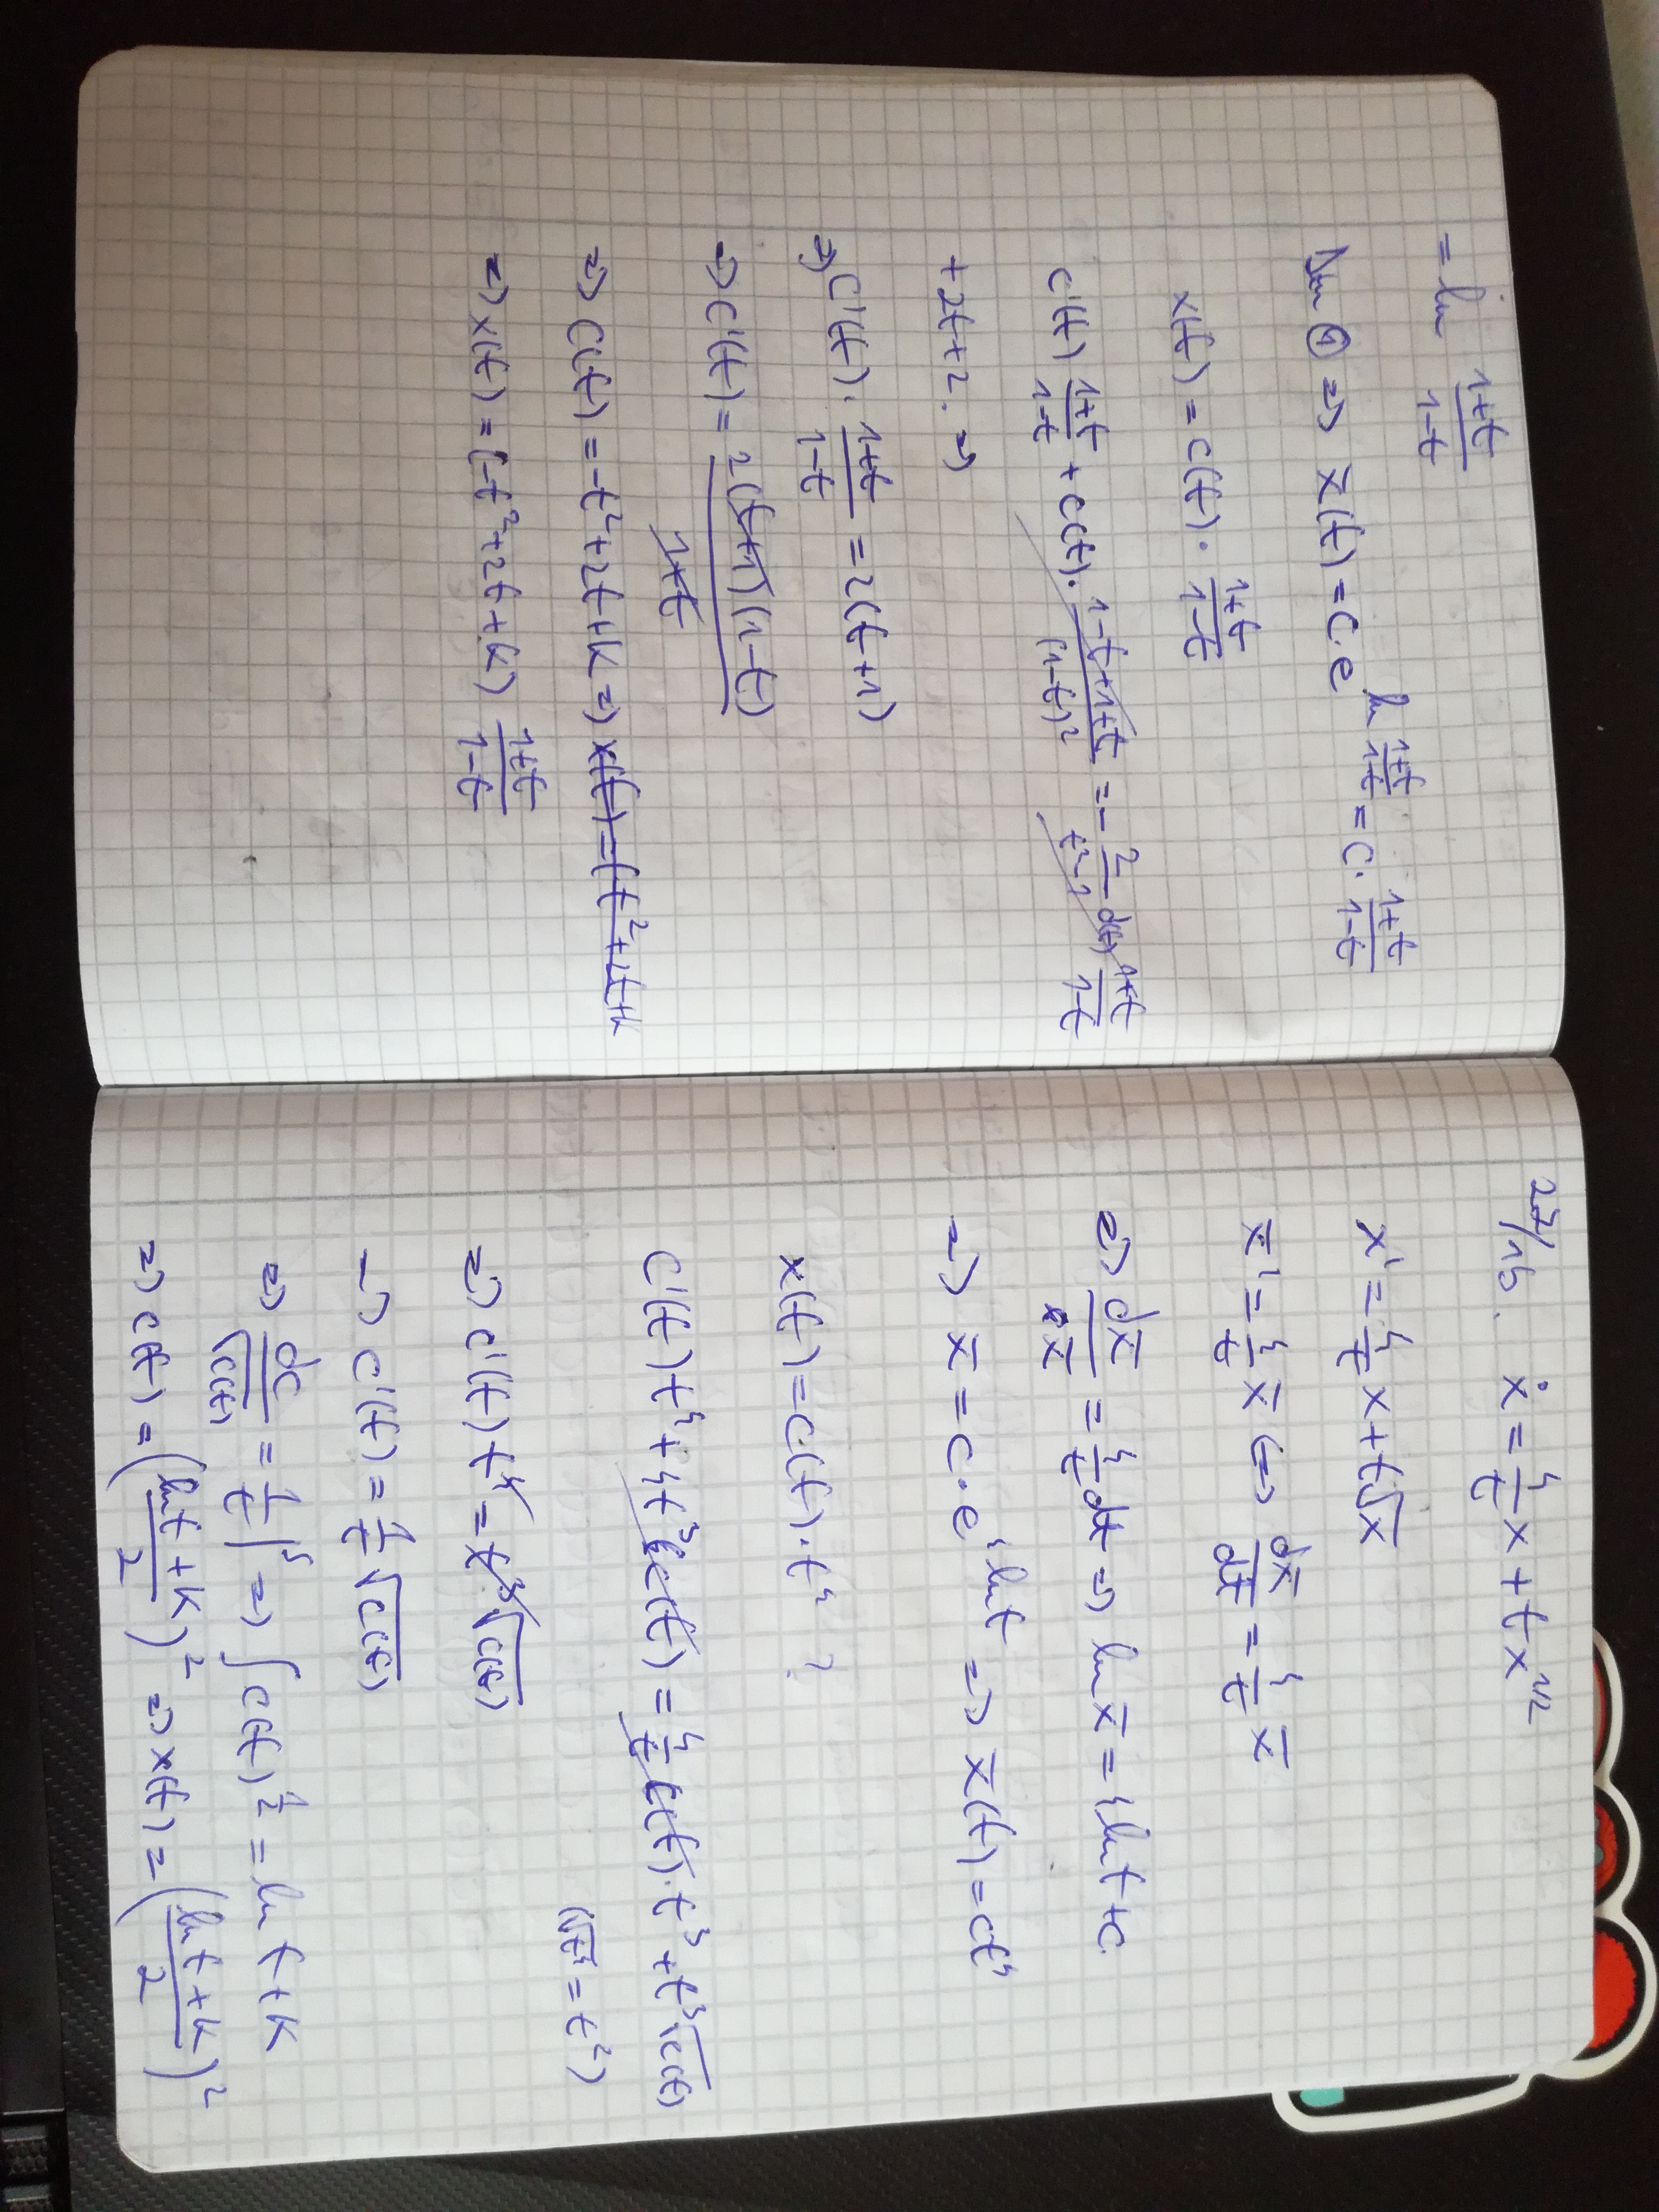 = ln (1+t)/(1-t)
Din ① => x̄(t) = C·e^(ln (1+t)/(1-t)) = C·(1+t)/(1-t)
x(t) = C(t)·(1+t)/(1-t)
C'(t) (1+t)/(1-t) + C(t)·(1-t+1+t)/(1-t)² = -2/(t²-1) C(t) (1+t)/(1-t)
+ 2t+2. =>
=> C'(t)·(1+t)/(1-t) = 2(t+1)
=> C'(t) = 2(t+1)(1-t)/(1+t)
=> C(t) = -t²+2t+k => x(t) = (-t²+2t+k
=> x(t) = (-t²+2t+k) (1+t)/(1-t)
27/16. ẋ = 4/t x + t x^(1/2)
x' = 4/t x + t√x
x̄' = 4/t x̄ <=> dx̄/dt = 4/t x̄
=> dx̄/x̄ = 4/t dt => ln x̄ = 4 ln t + c
=> x̄ = C·e^(4 ln t) => x̄(t) = ct⁴
x(t) = C(t)·t⁴ ?
C'(t) t⁴ + 4t³ C(t) = 4/t C(t)·t⁴ + t³√C(t)
(√t⁴ = t²)
=> C'(t) t⁴ = t³√C(t)
=> C'(t) = 1/t √C(t)
=> dC/√C(t) = 1/t |∫ => ∫ C(t)^(1/2) = ln t + k
=> C(t) = ((ln t + k)/2)² => x(t) = ((ln t + k)/2)²